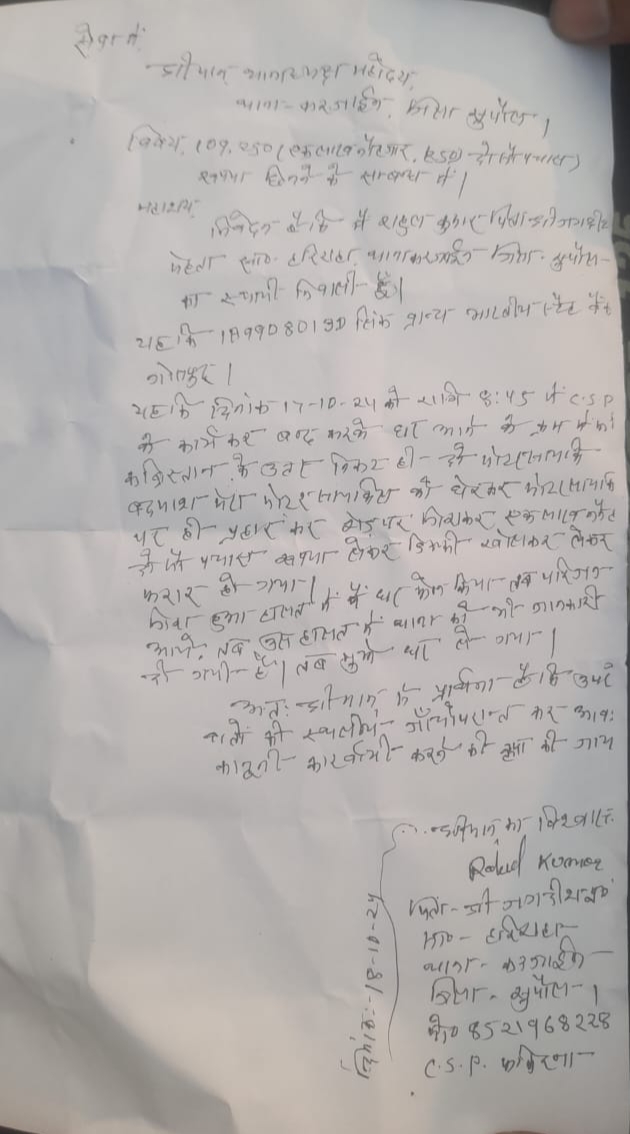 सेवा में,
श्रीमान् थानाध्यक्ष महोदय,
थाना - करजाईन, जिला सुपौल।
विषय, 109,250 (एक लाख नौ हजार, दो सौ पचास)
रूपया छिनने के सम्बन्ध में।
महाशय,
निवेदन है कि मैं राहुल कुमार पिता श्री जगदीश
मेहता सा०- हरिराहा, थाना करजाईन जिला- सुपौल
का स्थायी निवासी हूँ।
यह कि 1A9908019D लिंक ब्रान्च भारतीय स्टेट बैंक
यह कि दिनांक 17-10-24 को रात्रि 8:45 में C.S.P
के कार्य कर बन्द करके घर आने के क्रम में
कब्रिस्तान के उत्तर निकट ही दो मोटरसाईकिल
बदमाश मेरा मोटरसाईकिल को घेरकर मोटरसाईकिल
पर ही प्रहार कर रोड पर गिराकर एक लाख नौ हजार
दो सौ पचास रूपया लेकर डिक्की खोलकर लेकर
फरार हो गया।
गिरा हुआ हालत में मैं घर फोन किया तब परिजन
आये, तब उस हालत में थाना को भी जानकारी
दी गयी है। तब मुझे घर ले गया।
अतः श्रीमान् से प्रार्थना है कि उपरोक्त
बातों की स्थलीय जाँचोपरान्त कर आव०
कानूनी कार्यवाही करने की कृपा की जाय
श्रीमान् का विश्वास०
Rahul Kumar
पिता - श्री जगदीश मे०
सा०- हरिराहा
थाना - करजाईन
जिला - सुपौल।
मो० 8521968228
C.S.P.
दिनांक:- 18-10-24